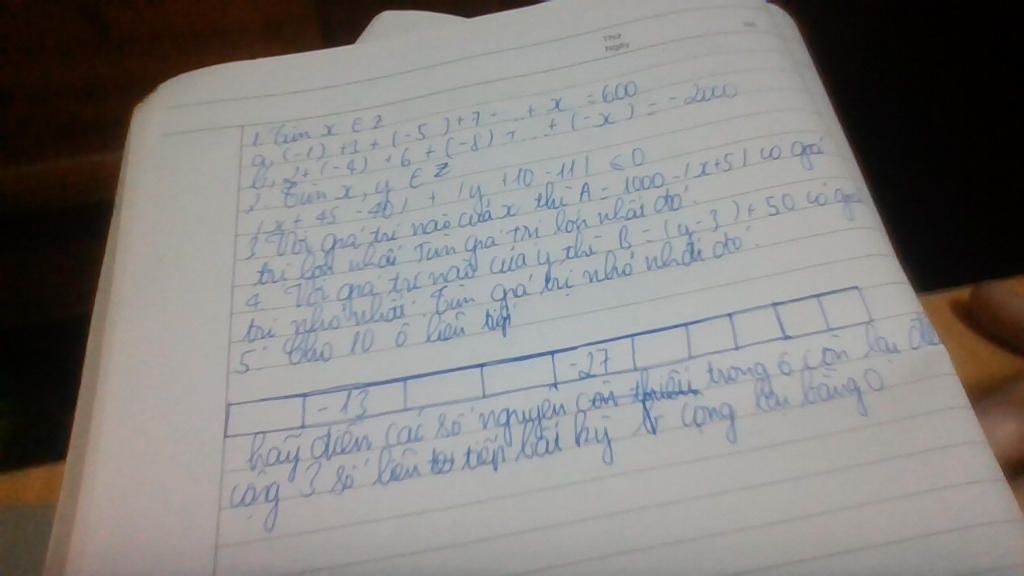 Thứ
Ngày
1. Tìm x ∈ Z
a, (-1) + 3 + (-5) + 7 - ... + x = 600
b, 2 + (-4) + 6 + (-8) + ... + (-x) = -2000
2. Tìm x, y ∈ Z
|x + 45 - 40| + |y + 10 - 11| ≤ 0
3 Với giá trị nào của x thì A = 1000 - |x+5| có giá
trị lớn nhất Tìm giá trị lớn nhất đó.
4 Với giá trị nào của y thì B = |y-3| + 50 có giá
trị nhỏ nhất Tìm giá trị nhỏ nhất đó.
5. Cho 10 ô liên tiếp
-13 -27
hãy điền các số nguyên trong ô còn lại để
cộng 3 số liên tiếp bất kỳ cộng lại bằng 0